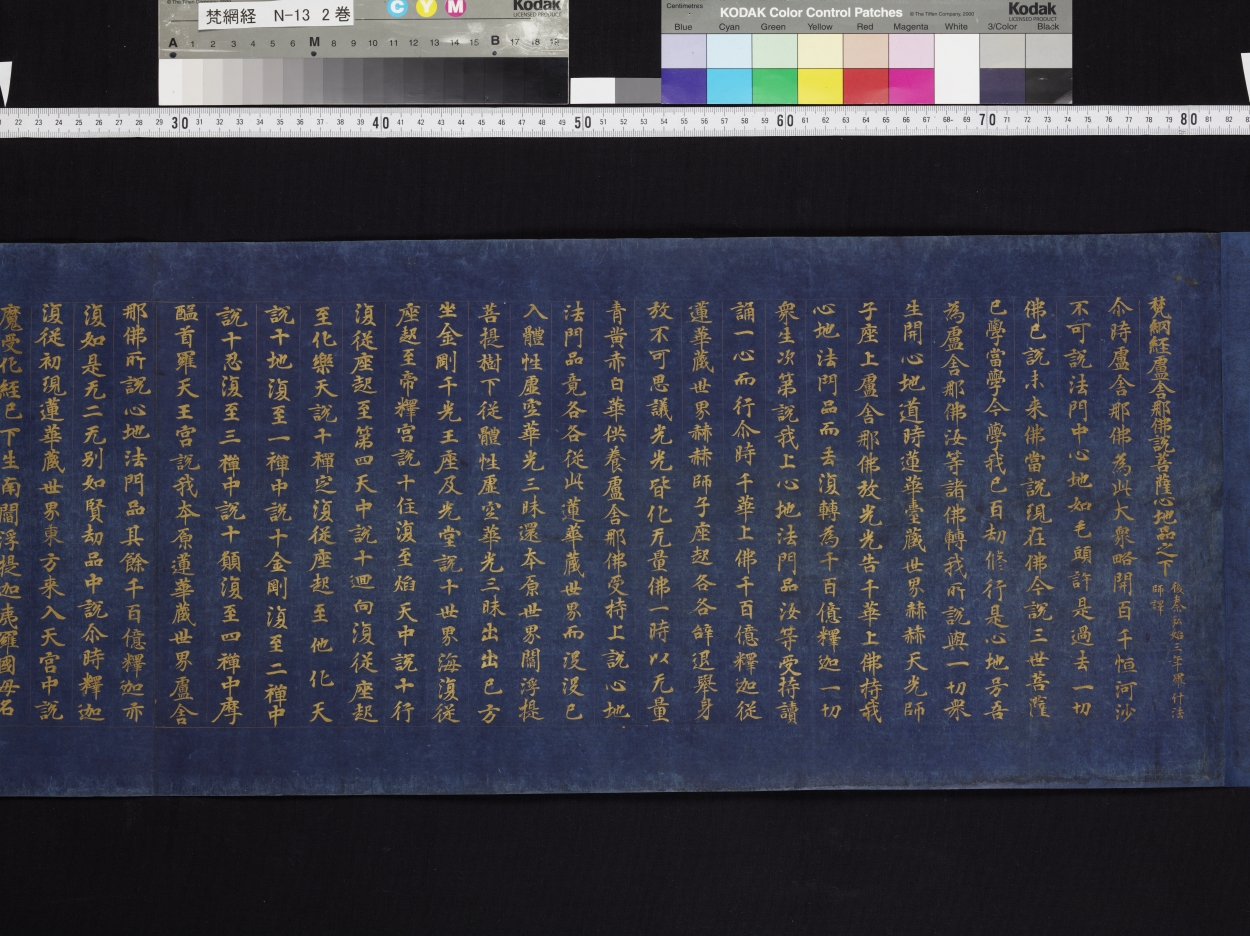 梵網経 N-13 2巻
C Y M
Kodak
LICENSED PRODUCT
A 1 2 3 4 5 6 M 8 9 10 11 12 13 14 15 B 17 18 19
Centimetres
KODAK Color Control Patches
© The Tiffen Company, 2000
Kodak
LICENSED PRODUCT
Blue Cyan Green Yellow Red Magenta White 3/Color Black
22 23 24 25 26 27 28 29 30 31 32 33 34 35 36 37 38 39 40 41 42 43 44 45 46 47 48 49 50 51 52 53 54 55 56 57 58 59 60 61 62 63 64 65 66 67 68 69 70 71 72 73 74 75 76 77 78 79 80 81 82
梵網經盧舍那佛說菩薩心地品之下
後秦弘始三年羅什法
師譯
尒時盧舍那佛為此大衆略開百千恒河沙
不可說法門中心地如毛頭許是過去一切
佛已說未来佛當說現在佛今說三世菩薩
已學當學今學我已百劫修行是心地号吾
為盧舍那佛汝等諸佛轉我所說與一切衆
生開心地道時蓮華臺藏世界赫赫天光師
子座上盧舍那佛放光光告千華上佛持我
心地法門品而去復轉為千百億釋迦一切
衆生次第說我上心地法門品汝等受持讀
誦一心而行尒時千華上佛千百億釋迦従
蓮華藏世界赫赫師子座起各各辞退舉身
放不可思議光光皆化无量佛一時以无量
青黄赤白華供養盧舍那佛受持上說心地
法門品竟各各従此蓮華藏世界而没没已
入體性虛空華光三昧還本原世界閻浮提
菩提樹下従體性虛空華光三昧出出已方
坐金剛千光王座及光堂說十世界海復従
座起至帝釋宮說十住復至焰天中說十行
復従座起至第四天中說十迴向復従座起
至化樂天說十禪定復従座起至他化天
說十地復至一禪中說十金剛復至二禪中
說十忍復至三禪中說十願復至四禪中摩
醯首羅天王宮說我本原蓮華藏世界盧舍
那佛所說心地法門品其餘千百億釋迦亦
復如是无二无别如賢劫品中說尒時釋迦
復従初現蓮華藏世界東方来入天宮中說
魔受化経已下生南閻浮提迦夷羅國母名